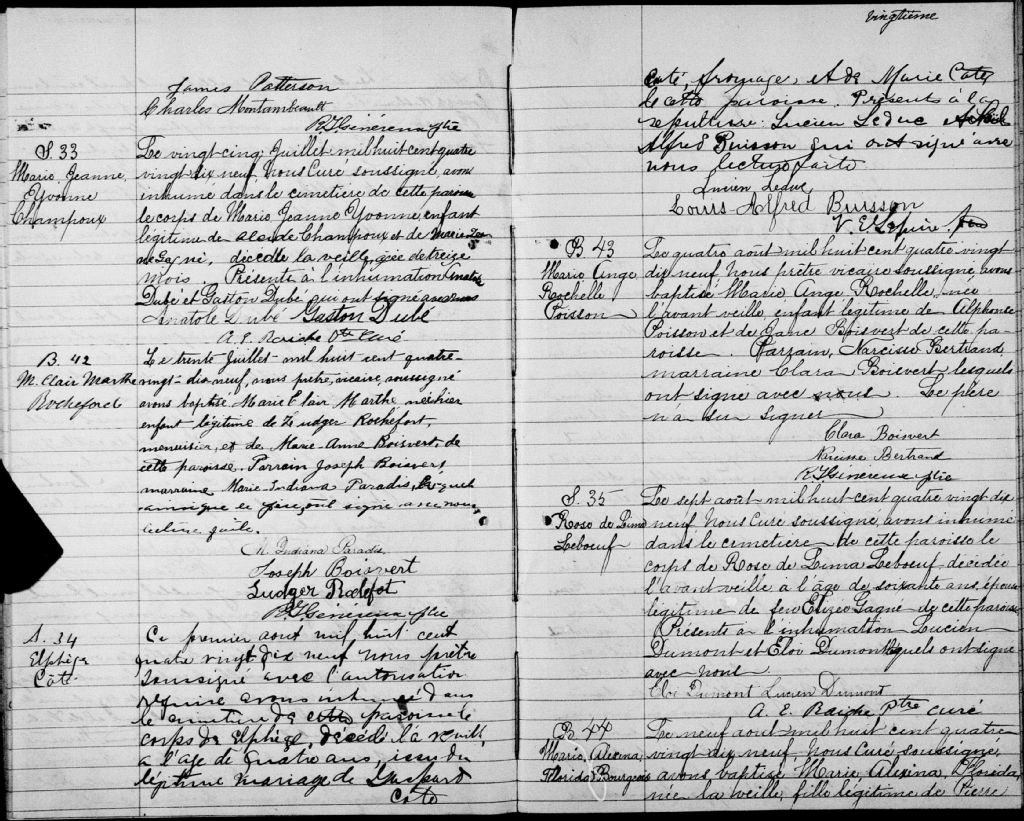 James Patterson
Charles Montambeault
ptre
S. 33
Marie Jeanne
Yvonne
Champoux
Le vingt cinq Juillet mil huit cent quatre
vingt dix neuf, Nous Curé soussigné, avons
inhumé dans le cimetière de cette paroisse
le corps de Marie Jeanne Yvonne, enfant
légitime de Champoux et de
décédée la veille, agée de treize
mois. Présents à l'inhumation Anatole
Dubé et Gaston Dubé qui ont signé avec nous
Anatole Dubé Gaston Dubé
A. E. Ptre Curé
B. 42
M. Clair Marthe
Rochefort
Le trente Juillet mil huit cent quatre-
vingt-dix-neuf, nous prêtre, vicaire, soussigné
avons baptisé Marie Clair Marthe née hier
enfant légitime de Ludger Rochefort,
menuisier, et de Marie-Anne Boisvert, de
cette paroisse. Parrain Joseph Boisvert
marraine Marie Indiana Paradis, lesquels
ont signé avec nous
lecture faite.
M. Indiana Paradis
Joseph Boisvert
Ludger
ptre
S. 34
Elphège
Côté
Ce premier aout mil huit cent
quatre vingt dix neuf nous prêtre
soussigné avec l'autorisation
requise avons inhumé dans
le cimetière de cette paroisse le
corps de Elphège, décédé la veille,
a l'age de quatre ans, issu du
légitime mariage de
Côté
vingtième
Coté, fromage, et de Marie Cote
de cette paroisse. Présents à la
sepulture Lucien Leduc
Alfred Buisson qui ont signé avec
nous lecture faite
Lucien Leduc
Louis Alfred Buisson
B 43
Marie Ange
Rochelle
Poisson
Le quatre août mil huit cent quatre vingt
dix neuf Nous prêtre vicaire soussigné, avons
baptisé Marie Ange Rochelle, née
l'avant veille, enfant légitime de Alphonse
Poisson et de Boisvert de cette pa-
roisse. Parrain, Narcisse Bertrand,
marraine Clara Boisvert lesquels
ont signé avec nous. Le père
n'a su signer
Clara Boisvert
Narcisse Bertrand
ptre
S. 35
Rose de Lima
Leboeuf
Le sept août mil huit cent quatre vingt dix
neuf, Nous Curé soussigné, avons inhumé
dans le cimetière de cette paroisse le
corps de Rose de Lima Leboeuf, décédée
l'avant veille à l'âge de soixante ans, épouse
légitime de feu Gagné de cette paroisse
Présents à l'inhumation Lucien
Dumont et Eloi Dumont lesquels ont signé
avec nous
Eloi Dumont Lucien Dumont
A. E. ptre curé
B 44
Marie, Alexina,
Florida Bourgeois
Le neuf aout mil huit cent quatre
vingt dix neuf, Nous Curé soussigné,
avons baptisé, Marie, Alexina, Florida,
née la veille, fille légitime de Pierre